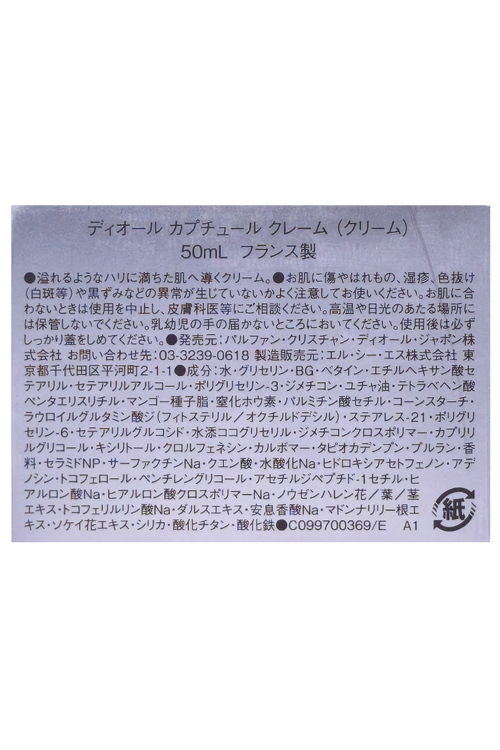 ディオール カプチュール クレーム (クリーム)
50mL フランス製
●溢れるようなハリに満ちた肌へ導くクリーム。●お肌に傷やはれもの、湿疹、色抜け
(白斑等)や黒ずみなどの異常が生じていないかよく注意してお使いください。お肌に合
わないときは使用を中止し、皮膚科医等にご相談ください。高温や日光のあたる場所に
は保管しないでください。乳幼児の手の届かないところにおいてください。使用後は必ず
しっかり蓋をしめてください。●発売元:パルファン・クリスチャン・ディオール・ジャポン株
式会社 お問い合わせ先:03-3239-0618 製造販売元:エル・シー・エス株式会社 東
京都千代田区平河町2-1-1●成分:水・グリセリン・BG・ベタイン・エチルヘキサン酸セ
テアリル・セテアリルアルコール・ポリグリセリン-3・ジメチコン・ユチャ油・テトラベヘン酸
ペンタエリスリチル・マンゴー種子脂・窒化ホウ素・パルミチン酸セチル・コーンスターチ・
ラウロイルグルタミン酸ジ(フィトステリル/オクチルドデシル)・ステアレス-21・ポリグリ
セリン-6・セテアリルグルコシド・水添ココグリセリル・ジメチコンクロスポリマー・カプリリ
ルグリコール・キシリトール・クロルフェネシン・カルボマー・タピオカデンプン・プルラン・香
料・セラミドNP・サーファクチンNa・クエン酸・水酸化Na・ヒドロキシアセトフェノン・アデ
ノシン・トコフェロール・ペンチレングリコール・アセチルジペプチド-1セチル・ヒ
アルロン酸Na・ヒアルロン酸クロスポリマーNa・ノウゼンハレン花/葉/茎
エキス・トコフェリルリン酸Na・ダルスエキス・安息香酸Na・マドンナリリー根エ
キス・ソケイ花エキス・シリカ・酸化チタン・酸化鉄●C099700369/E A1
紙